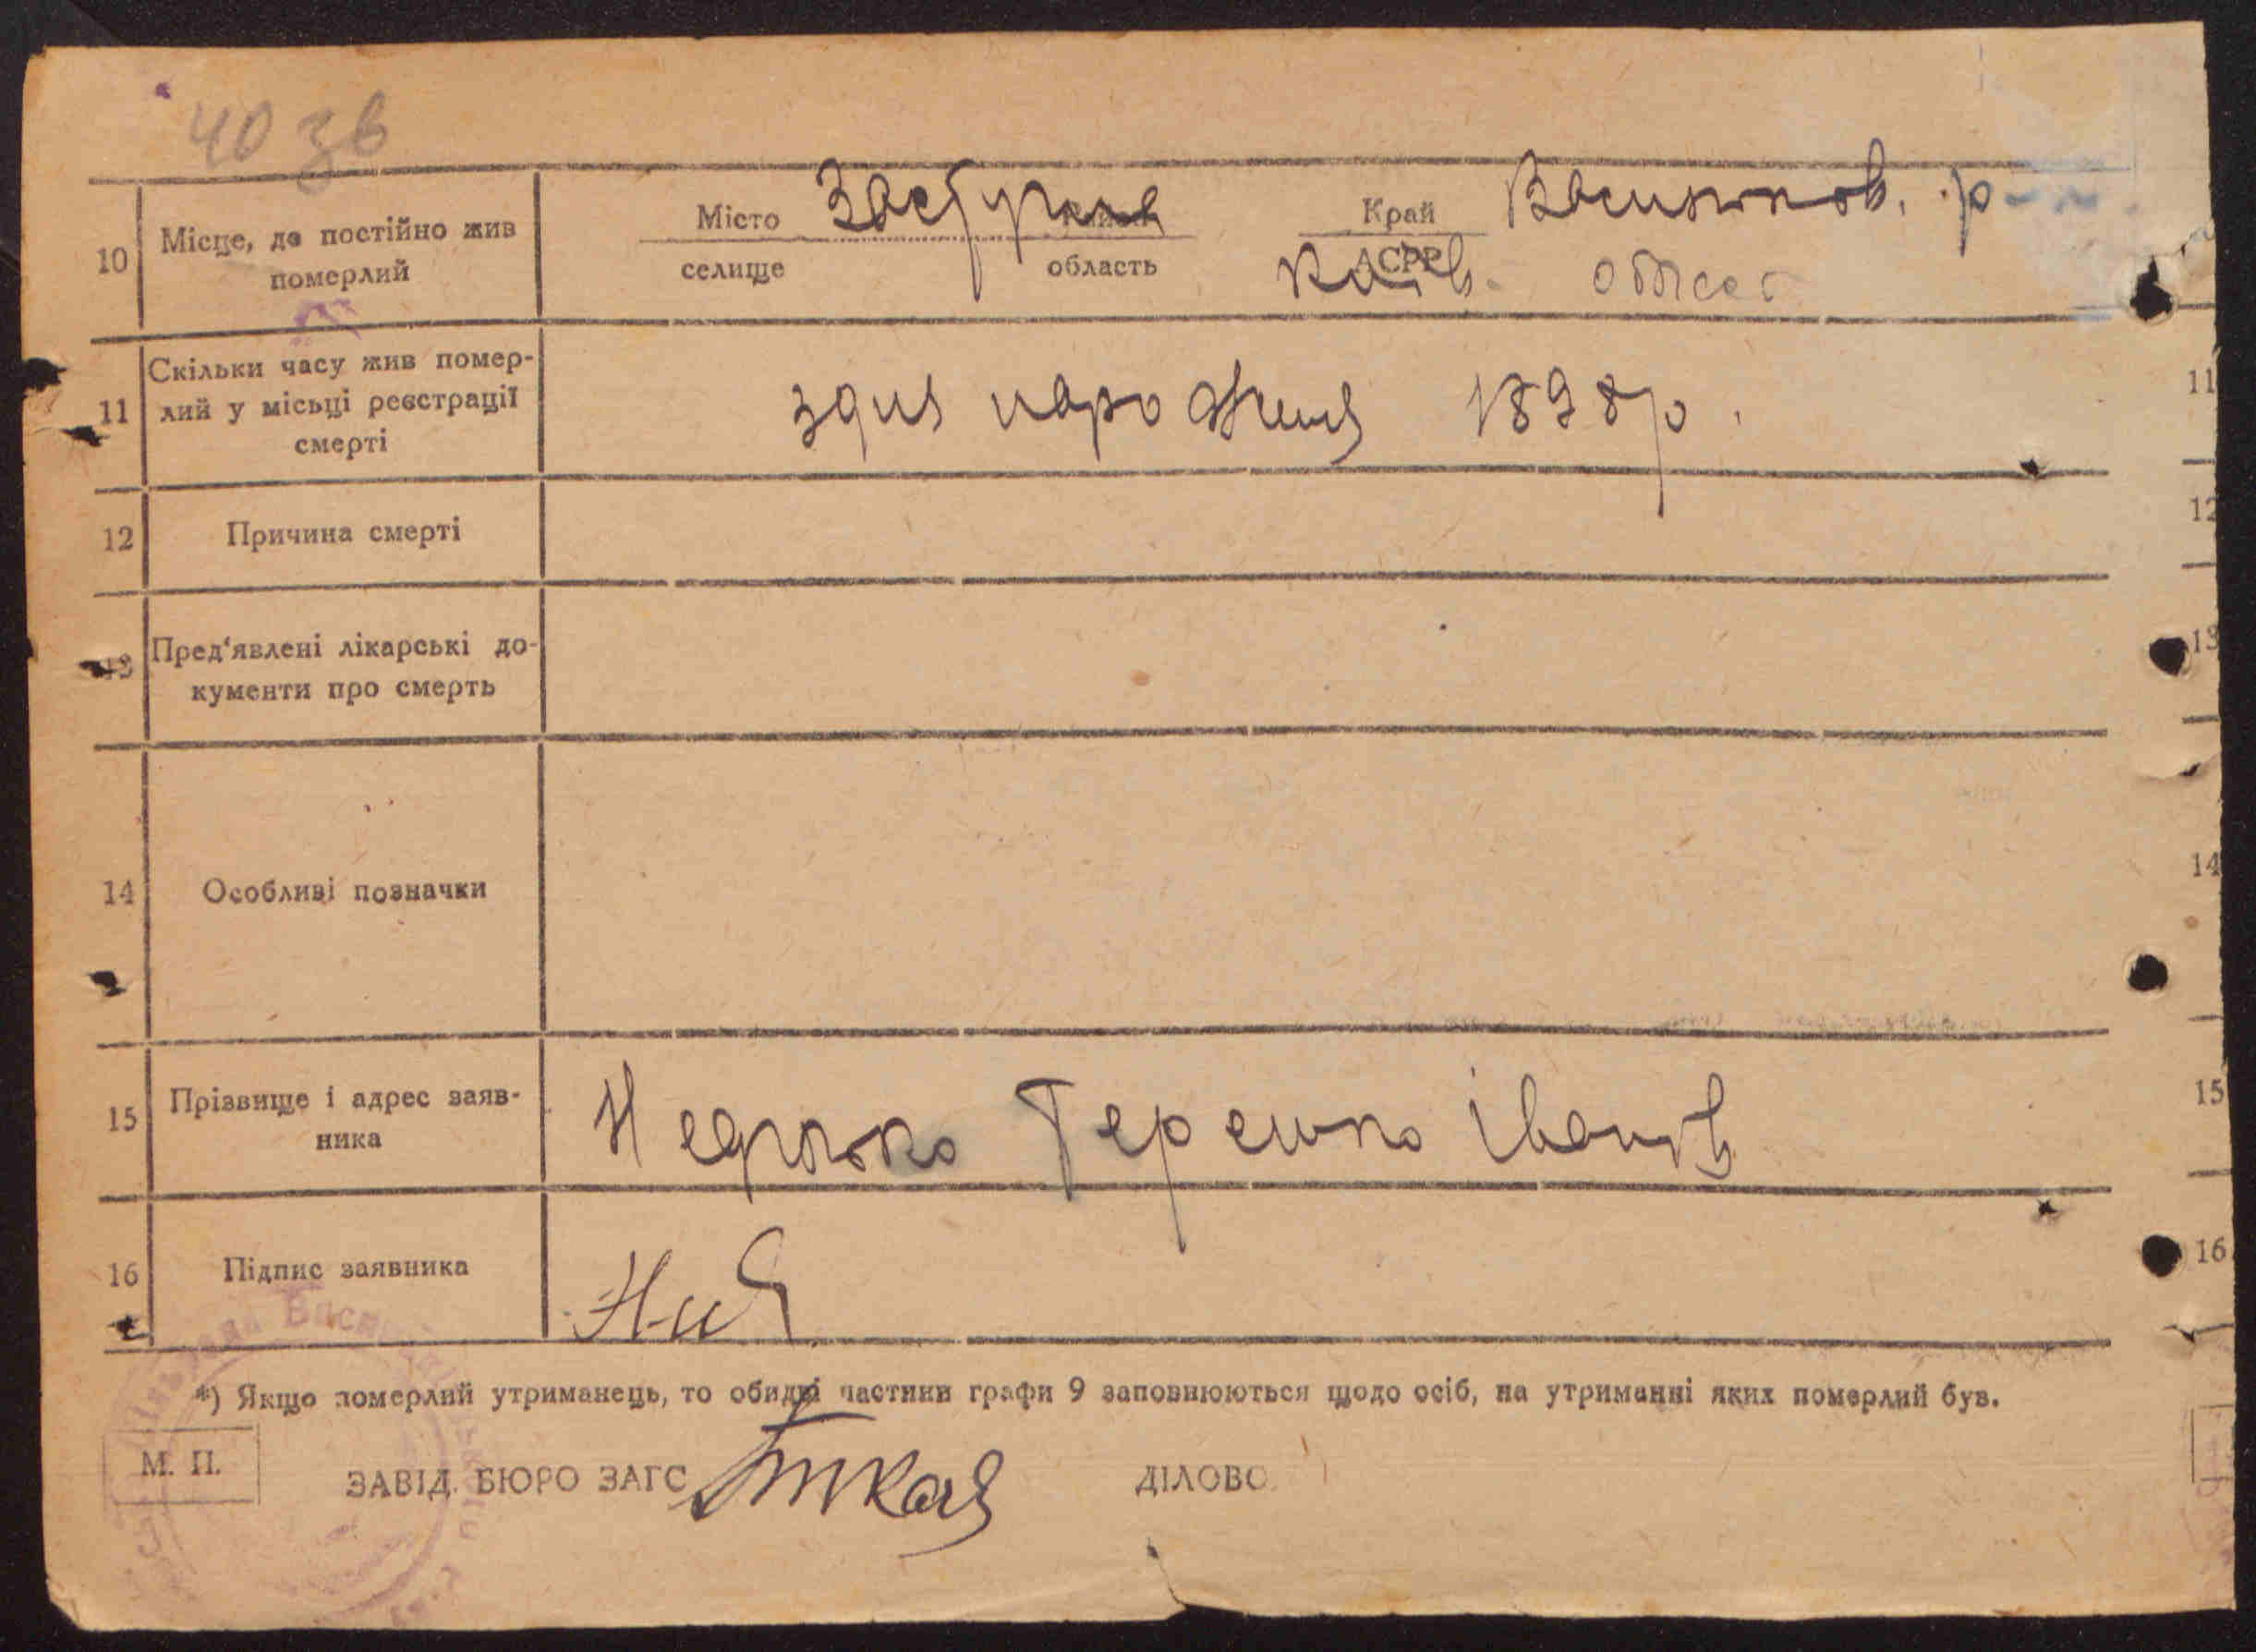 40 зв
10
Місце, де постійно жив
померлий
Місто
селище
Застугна
область
Край
АСРР
Васильков. р-н.
Київ. област
11
Скільки часу жив помер-
лий у місьці реєстрації
смерті
здня народження 1898 р.
12
Причина смерті
13
Пред'явлені лікарські до-
кументи про смерть
14
Особливі позначки
15
Прізвище і адрес заяв-
ника
Терешко Іванов
16
Підпис заявника
*) Якщо померлий утриманець, то обидві частини графи 9 заповнюються щодо осіб, на утриманні яких померлий був.
М. П.
ЗАВІД. БЮРО ЗАГС
ДІЛОВО
11
12
13
14
15
16